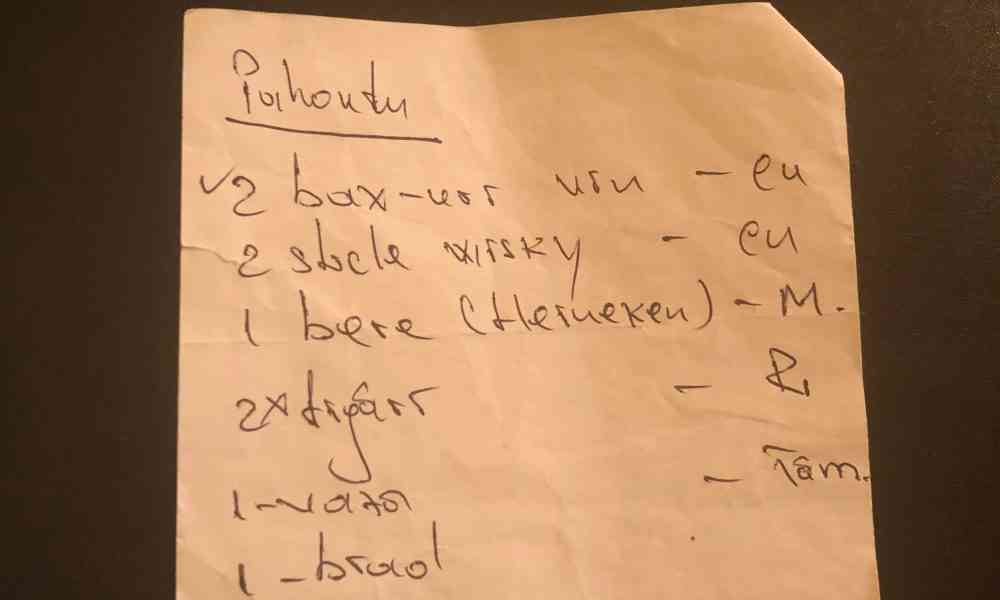 Pahontu
✓2 bax-uri vin - eu
2 sticle wisky - eu
1 bere (Heineken) - M.
2x țigări - R.
- Tăm.
1-vază
1-brad